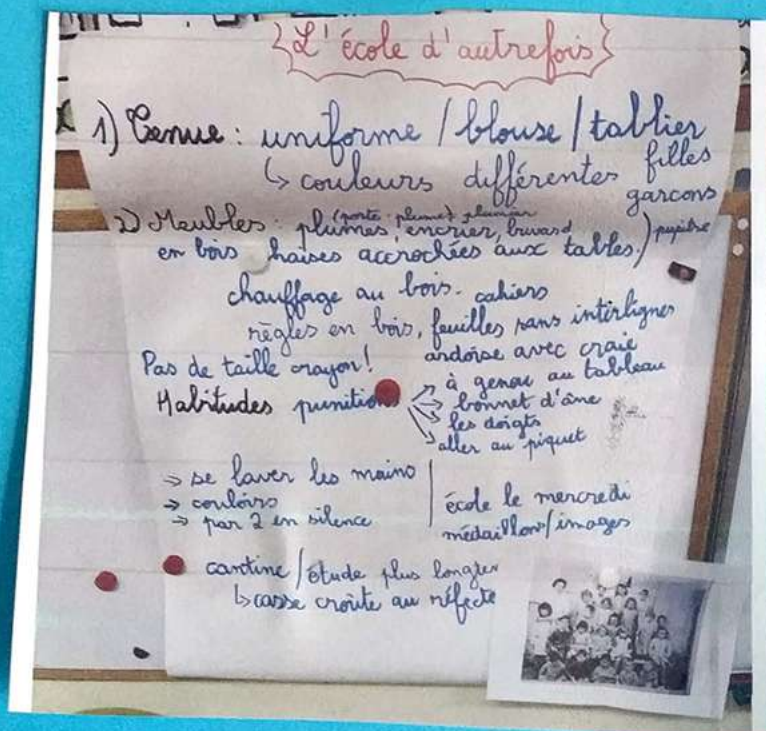 L'école d'autrefois
1) Tenue : uniforme / blouse / tablier
↳ couleurs différentes filles
garcons
2) Meubles : plumes (porte-plume) plumier encrier, buvard pupitre
en bois haises accrochées aux tables.
chauffage au bois. cahiers
règles en bois, feuilles sans interlignes
ardoise avec craie
Pas de taille crayon !
Habitudes punitions → à genou au tableau
→ bonnet d'âne
→ les doigts
→ aller au piquet
→ se laver les mains
→ couloirs
→ par 2 en silence
école le mercredi
médaillons/images
cantine / étude plus longues
↳ casse croûte au réfecto